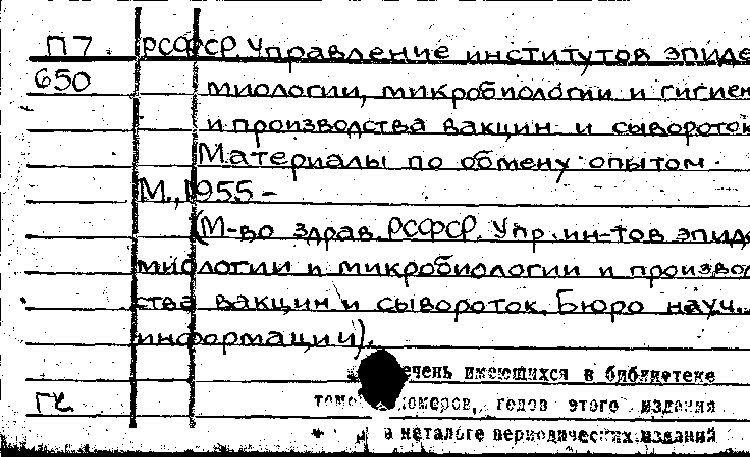 П7 РСФСР. Управление институтов эпиде
650 миологии, микробиологии и гигиен
и производства вакцин и сывороток
Материалы по обмену опытом.
М., 1955 -
(М-во здрав. РСФСР. Упр. ин-тов эпиде
миологии и микробиологии и производ
ства вакцин и сывороток. Бюро науч.
информации).
ечень имеющихся в библиотеке
номеров, годов этого издания
в каталоге периодических изданий